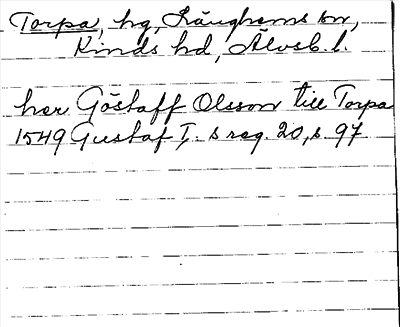 Torpa, hg, Länghems sn,
Kinds hd, Älvsb. l.
her Göstaff Olsson till Torpa
1549 Gustaf I:s reg. 20, s. 97